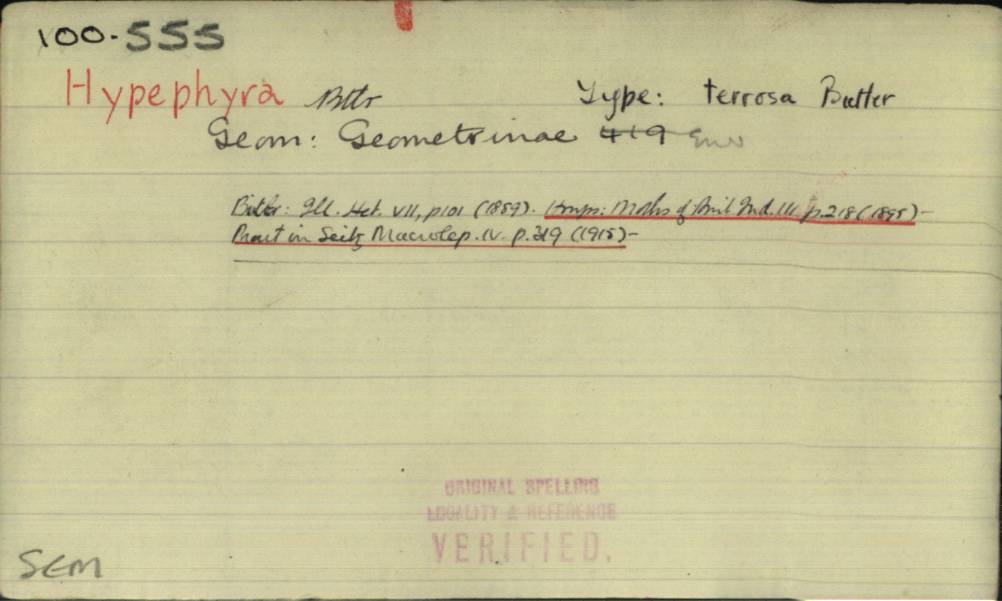 100-555
Hypephyra Btlr Type: terrosa Butler
Geom: Geometrinae 419 Enn
Butlr: Ill. Het. VII, p101 (1889). Hmps: Moths of Brit Ind. III p.218 (1895)-
Prout in Seitz Macrolep. IV. p.319 (1915)-
ORIGINAL SPELLING
LOCALITY & REFERENCE
VERIFIED.
SEM